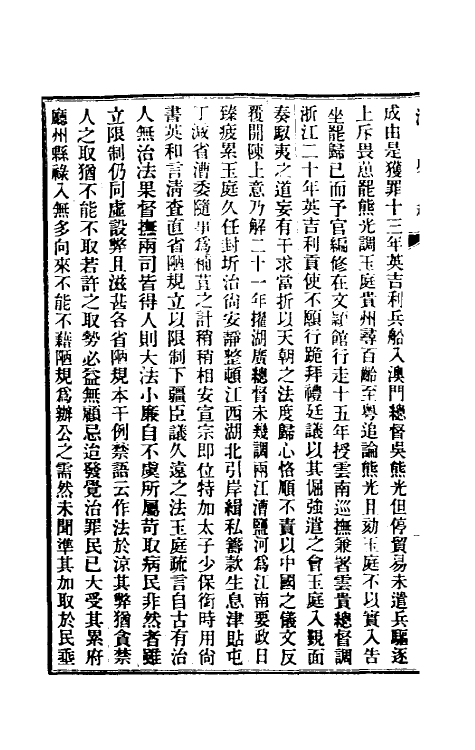 成由是獲罪十三年英吉利兵船入澳門總督吳熊光但停貿易未遣兵驅逐
上斥畏葸罷熊光調玉庭貴州尋百齡至粵追論熊光且劾玉庭不以實入告
坐罷歸已而予官編修在文穎館行走十五年授雲南巡撫兼署雲貴總督調
浙江二十年英吉利貢使不願行跪拜禮廷議以其倔強遣之會玉庭入覲面
奏馭夷之道妄有干求當折以天朝之法度歸心恪順不責以中國之儀文反
覆開陳上意乃解二十一年擢湖廣總督未幾調兩江漕鹽河爲江南要政日
臻疲累玉庭久任封圻治尙安靜整頓江西湖北引岸緝私籌款生息津貼屯
丁減省漕委隨事爲補苴之計稍稍相安宣宗卽位特加太子少保銜時用尙
書英和言清查直省陋規立以限制下疆臣議久遠之法玉庭疏言自古有治
人無治法果督撫兩司皆得人則大法小廉自不虞所屬苛取病民非然者雖
立限制仍同虛設弊且滋甚各省陋規本干例禁語云作法於涼其弊猶貪禁
人之取猶不能不取若許之取勢必益無顧忌迨發覺治罪民已大受其累府
廳州縣祿入無多向來不能不藉陋規爲辦公之需然未聞準其加取於民垂